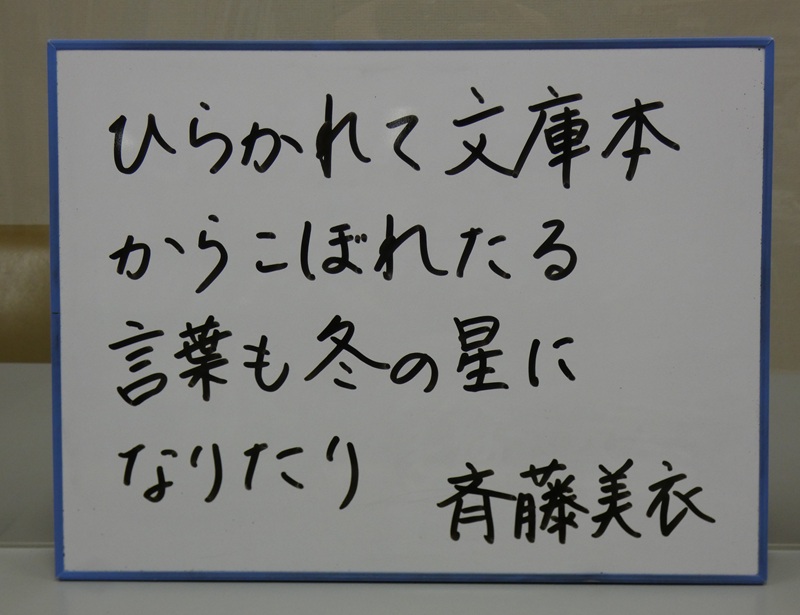 ひらかれて文庫本
からこぼれたる
言葉も冬の星に
なりたり
斉藤美衣